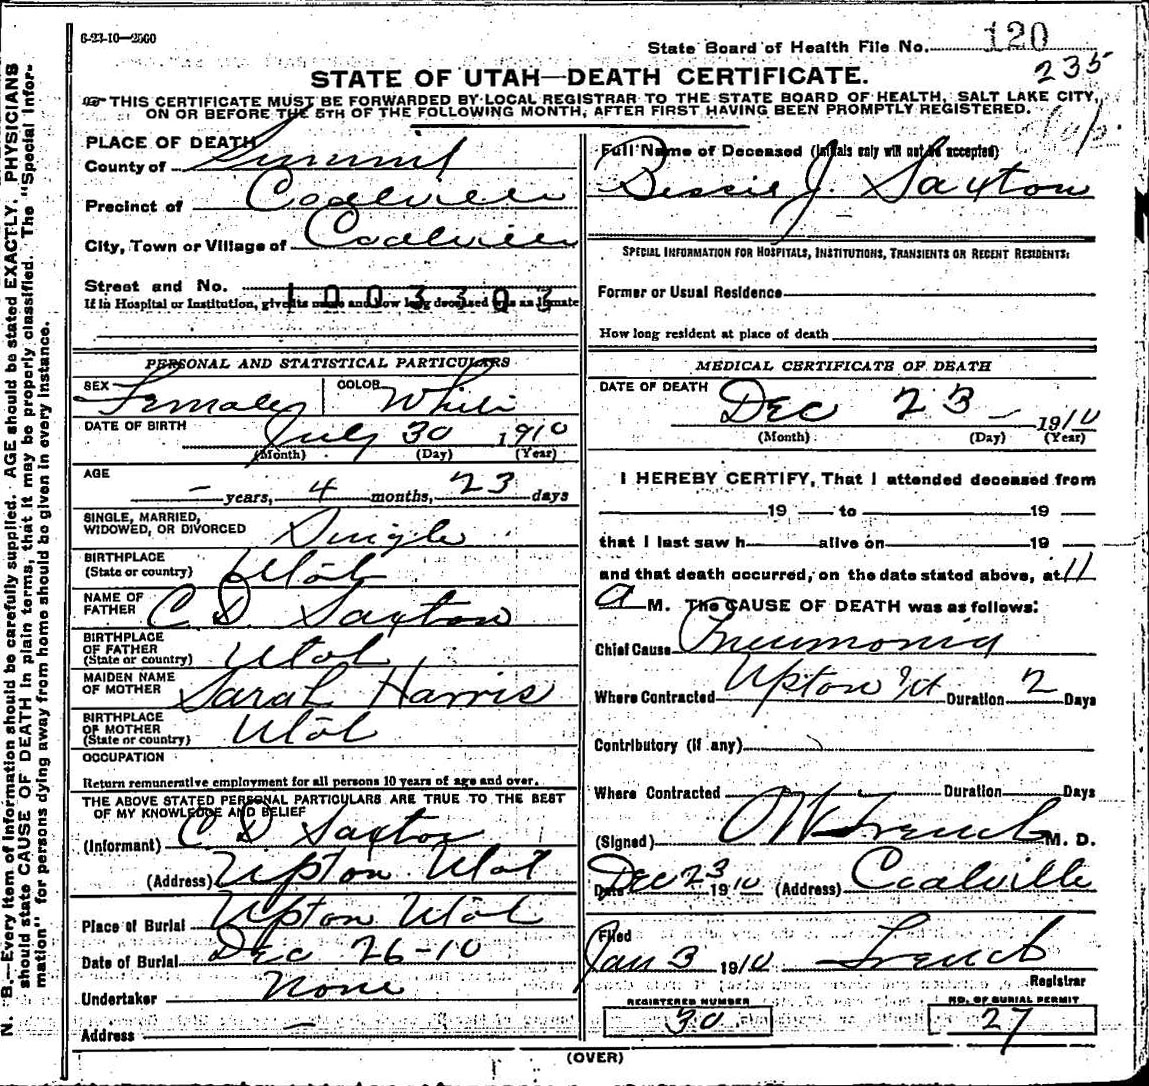 6-23-10—2560
State Board of Health File No. 120
235
STATE OF UTAH—DEATH CERTIFICATE.
THIS CERTIFICATE MUST BE FORWARDED BY LOCAL REGISTRAR TO THE STATE BOARD OF HEALTH, SALT LAKE CITY,
ON OR BEFORE THE 5TH OF THE FOLLOWING MONTH, AFTER FIRST HAVING BEEN PROMPTLY REGISTERED.
PLACE OF DEATH
County of Summit
Precinct of Coalville
City, Town or Village of Coalville
Street and No.
1003303
If in Hospital or Institution, give its name and how long deceased was as inmate
PERSONAL AND STATISTICAL PARTICULARS
SEX Female COLOR White
DATE OF BIRTH July 30 1910
(Month) (Day) (Year)
AGE
— years, 4 months, 23 days
SINGLE, MARRIED,
WIDOWED, OR DIVORCED Single
BIRTHPLACE
(State or country) Utah
NAME OF
FATHER C D. Saxton
BIRTHPLACE
OF FATHER
(State or country) Utah
MAIDEN NAME
OF MOTHER Sarah Harris
BIRTHPLACE
OF MOTHER
(State or country) Utah
OCCUPATION
Return remunerative employment for all persons 10 years of age and over.
THE ABOVE STATED PERSONAL PARTICULARS ARE TRUE TO THE BEST
OF MY KNOWLEDGE AND BELIEF
(Informant) C D Saxton
(Address) Upton Utah
Place of Burial Upton Utah
Date of Burial Dec 26-10
Undertaker None
Address —
Full Name of Deceased (Initials only will not be accepted)
Bessie J. Saxton
SPECIAL INFORMATION FOR HOSPITALS, INSTITUTIONS, TRANSIENTS OR RECENT RESIDENTS:
Former or Usual Residence
How long resident at place of death
MEDICAL CERTIFICATE OF DEATH
DATE OF DEATH Dec 23 — 1910
(Month) (Day) (Year)
I HEREBY CERTIFY, That I attended deceased from
19 to 19
that I last saw h alive on 19
and that death occurred, on the date stated above, at 11
a M. The CAUSE OF DEATH was as follows:
Chief Cause Pneumonia
Where Contracted Upton Ut Duration 2 Days
Contributory (if any)
Where Contracted Duration Days
(Signed) O W French M. D.
Date Dec 23 1910 (Address) Coalville
Filed
Jan 3 1910 French
Registrar
REGISTERED NUMBER
30
NO. OF BURIAL PERMIT
27
(OVER)
N. B.—Every item of information should be carefully supplied. AGE should be stated EXACTLY. PHYSICIANS
should state CAUSE OF DEATH in plain terms, that it may be properly classified. The "Special Infor-
mation" for persons dying away from home should be given in every instance.